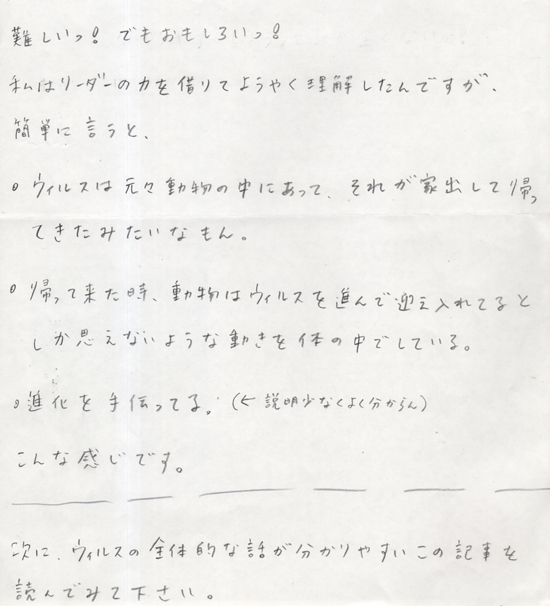 難しいっ! でもおもしろいっ!
私はリーダーの力を借りてようやく理解したんですが、
簡単に言うと、
○ ウィルスは元々動物の中にあって、それが家出して帰っ
てきたみたいなもん。
○ 帰って来た時、動物はウィルスを進んで迎え入れてると
しか思えないような動きを体の中でしている。
○ 進化を手伝ってる。(← 説明少なくよく分からん)
こんな感じです。
次に、ウィルスの全体的な話が分かりやすいこの記事を
読んでみて下さい。